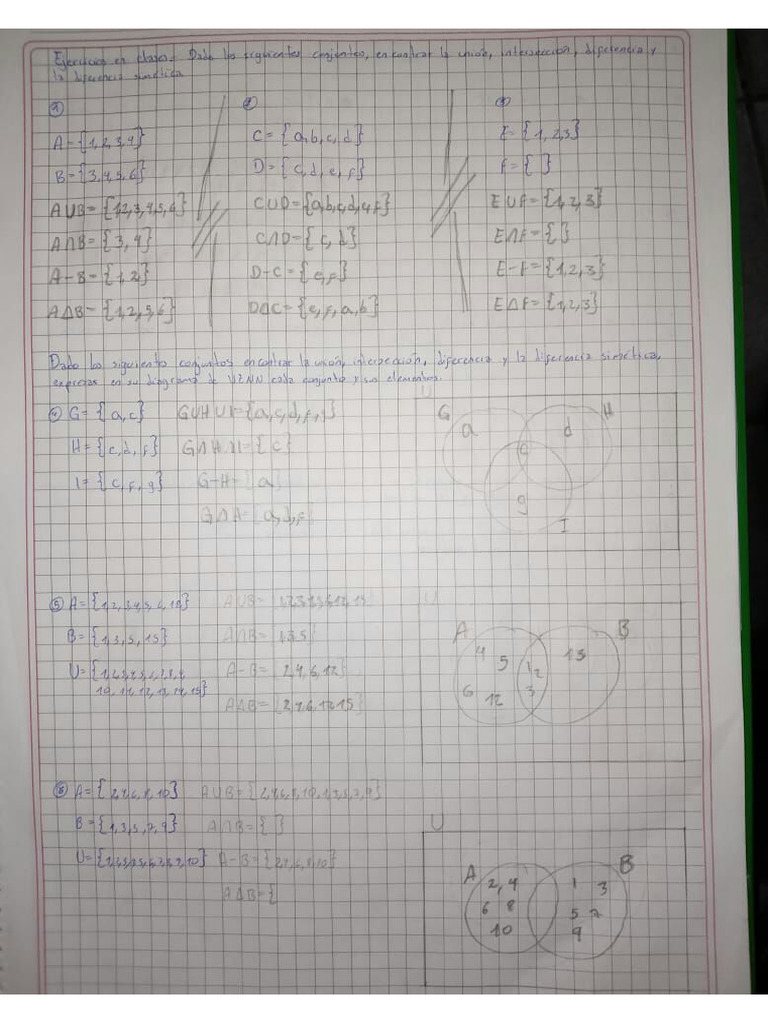 Ejercicios en clases. Dado los siguientes conjuntos, encontrar la unión, intersección, diferencia y
la diferencia simética
A={1,2,3,4}
B={3,4,5,6}
AUB={1,2,3,4,5,6}
A∩B={3,4}
A-B={1,2}
AΔB={1,2,5,6}
②
C={a,b,c,d}
D={c,d,e,f}
CUD={a,b,c,d,e,f}
C∩D={c,d}
D-C={e,f}
DΔC={e,f,a,b}
③
E={1,2,3}
F={ }
EUF={1,2,3}
E∩F={ }
E-F={1,2,3}
EΔF={1,2,3}
Dado los siguiento conjuntos encontrar la unión, intersección, diferencia y la diferencia simética,
expresar en su diagrama de VENN cada conjunto y sus elementos.
④ G={a,c}
H={c,d,f}
I={c,f,g}
GUHUI={a,c,d,f,g}
G∩H∩I={c}
G-H={a}
U
G
H
a
d
c
g
I
⑤ A={1,2,3,4,5,6,12}
B={1,3,5,15}
AUB=
A∩B= 1,3,5}
A-B= 2,4,6,12}
AΔB={2,4,6,12,15}
U
A
B
4
5
1
2
15
6
12
3
⑥ A={2,4,6,8,10}
B={1,3,5,7,9}
AUB={2,4,6,8,10,1,3,5,7,9}
A∩B={ }
A-B={2,4,6,8,10}
AΔB={
U
A
B
2,4
1
3
6
8
5
7
10
9